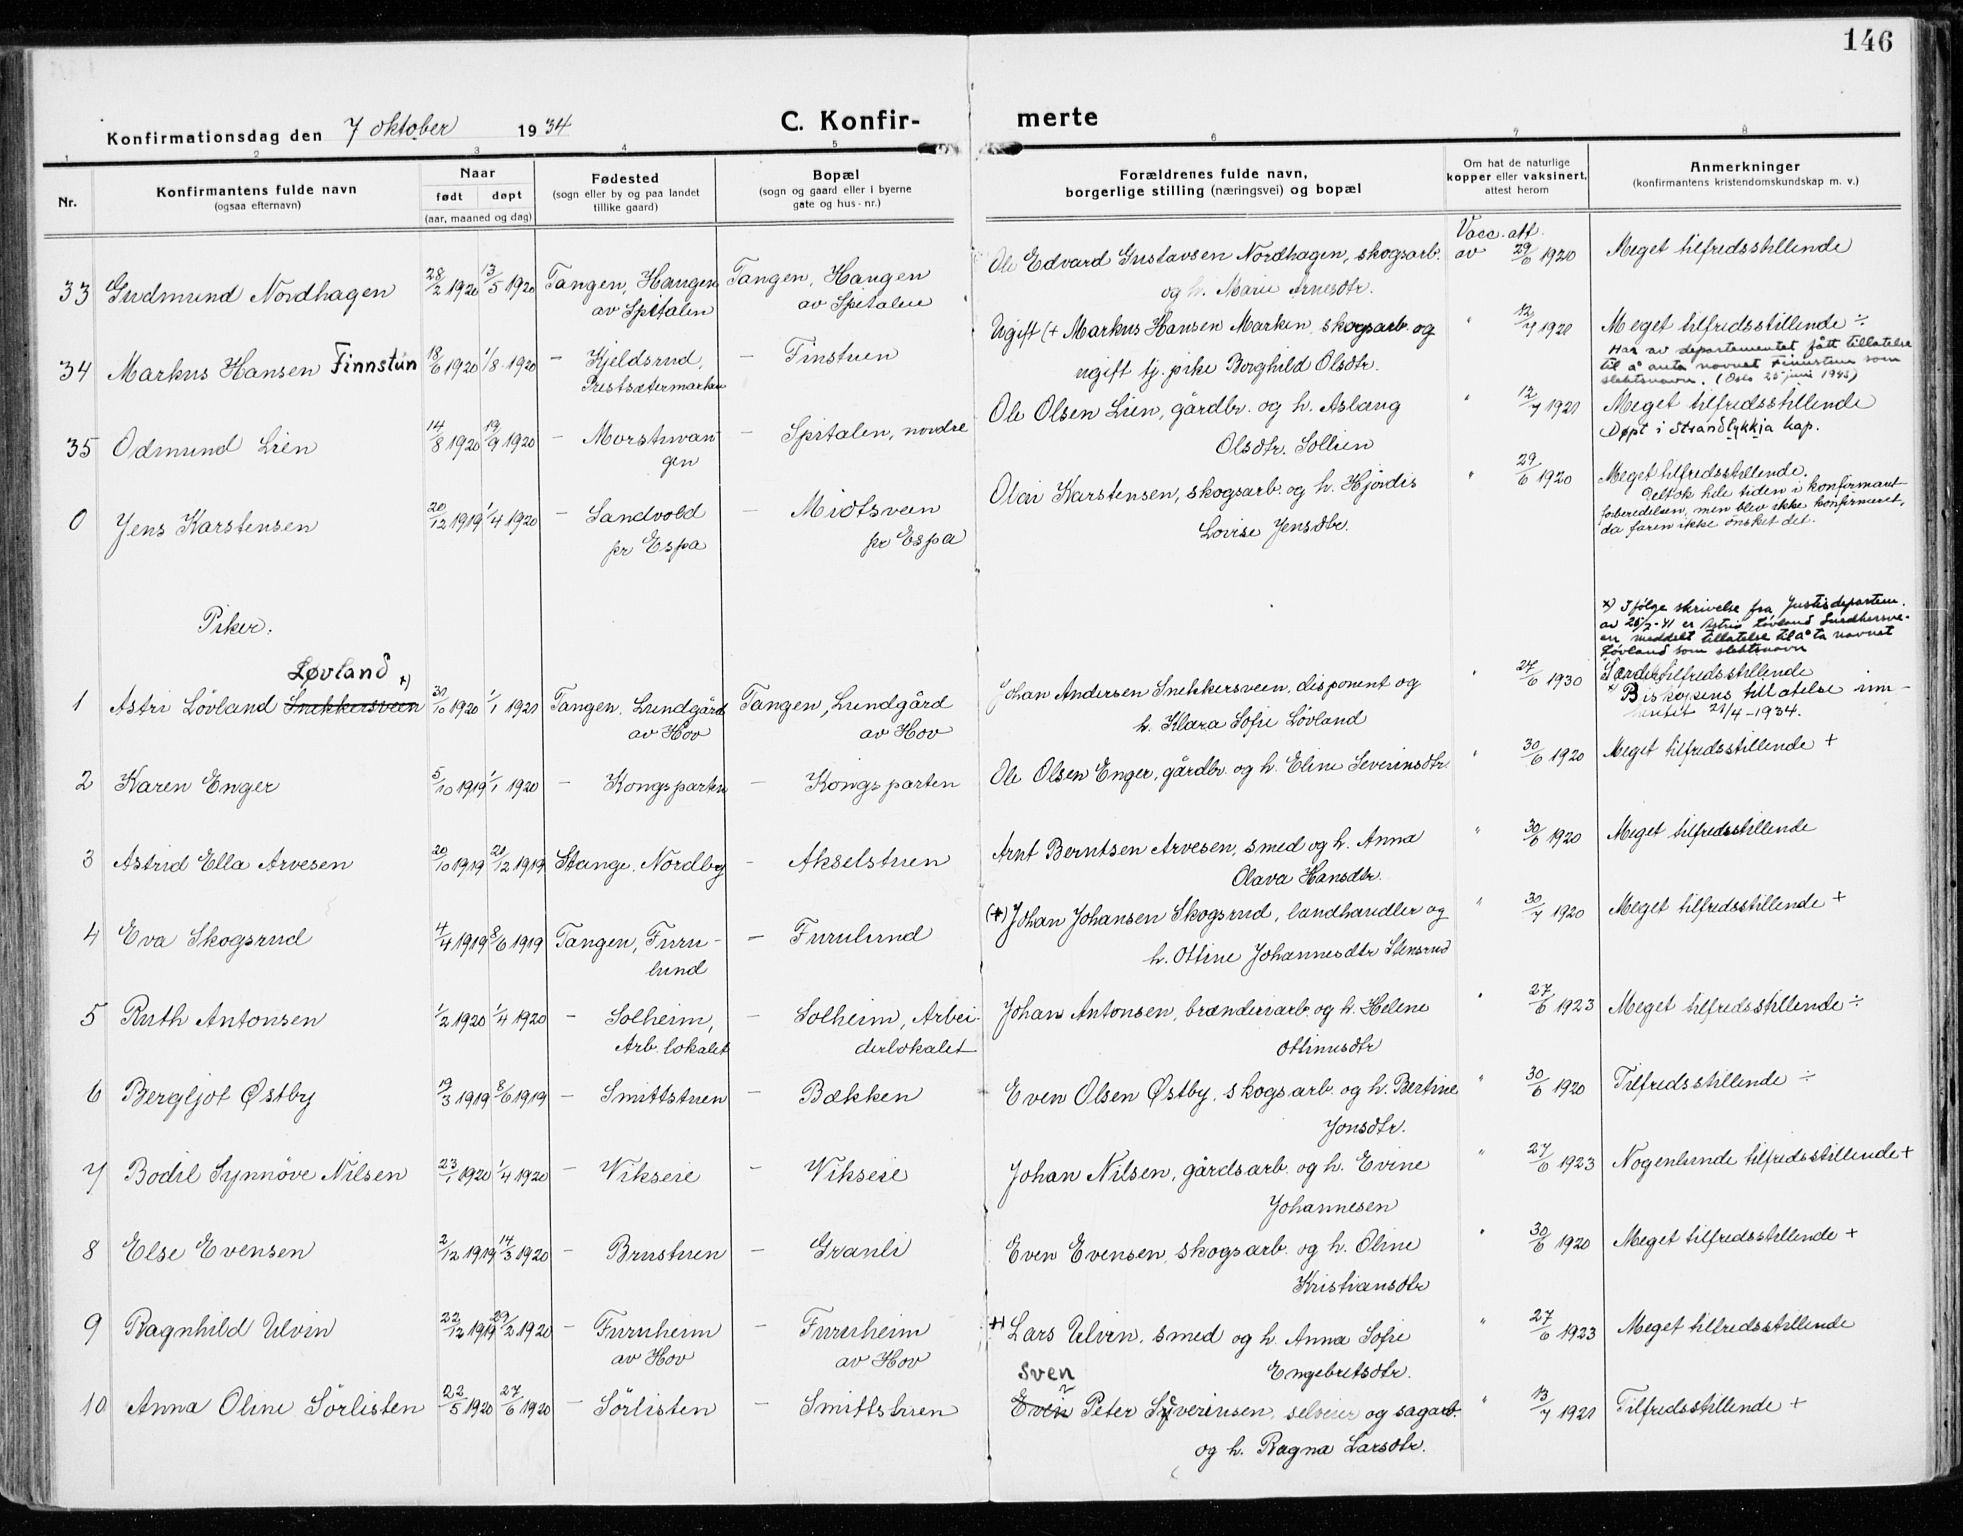 146
Konfirmationsdag den 7 oktober 1934
C. Konfirmerte
1 2 3 4 5 6 7 8
Nr.
Konfirmantens fulde navn
(ogsaa efternavn)
Naar
født døpt
(aar, maaned og dag)
Fødested
(sogn eller by og paa landet
tillike gaard)
Bopæl
(sogn og gaard eller i byerne
gate og hus-nr.)
Forældrenes fulde navn,
borgerlige stilling (næringsvei) og bopæl
Om hat de naturlige
kopper eller vaksinert,
attest herom
Anmerkninger
(konfirmantens kristendomskundskap m. v.)
Vacc. att.
33 Gudmund Nordhagen 28/2 1920 13/5 1920 Tangen, Haugen Tangen, Haugen Ole Edvard Gustavsen Nordhagen, skogsarb. av 29/6 1920 Meget tilfredsstillende
av Spitalen av Spitalen og h. Marie Arnesdtr.
34 Markus Hansen Finnstun 18/6 1920 1/8 1920 – Kjeldsrud, – Finstuen Ugift (+ Markus Hansen Marken, skogsarb. og " 12/7 1920 Meget tilfredsstillende ÷
Prestsætermarken ugift tj. pike Borghild Olsdtr.
Har av departementet fått tillatelse
til å anta navnet Finnstun som
slektsnavn. (Oslo 25 juni 1945)
35 Odmund Lien 14/8 1920 19/9 1920 – Morstuvan- – Spitalen, nordre Ole Olsen Lien, gårdbr. og h. Aslaug " 12/7 1921 Meget tilfredsstillende
gen Olsdtr. Sollien Døpt i Strandlykkja kap.
0 Jens Karstensen 20/12 1919 1/4 1920 – Sandvold – Midtsveen Olav Karstensen, skogsarb. og h. Hjördis " 29/6 1920 Meget tilfredsstillende.
pr Espa pr Espa Lovise Jensdtr.
Deltok hele tiden i konfirmant
forberedelsen, men blev ikke konfirmeret,
da faren ikke ønsket det.
Piker.
x) Ifølge skrivelse fra Justisdepartem.
av 25/2-41 er Astri Løvland Snekkersve-
en meddelt tillatelse til å ta navnet
Løvland som slektsnavn
Løvland x)
1 Astri Lövland Snekkersveen 30/10 1920 1/1 1921 Tangen, Lundgård Tangen, Lundgård Johan Andersen Snekkersveen, disponent og " 27/6 1930 Særdeles tilfredsstillende
av Hov av Hov h. Klara Sofie Lövland
x) Biskopens tillatelse inn-
hentet 21/4-1934.
2 Karen Enger 5/10 1919 1/1 1920 – Kongsparten – Kongsparten Ole Olsen Enger, gårdbr. og h. Eline Severinsdtr. " 30/6 1920 Meget tilfredsstillende +
3 Astrid Ella Arvesen 20/10 1919 21/12 1919 Stange, Nordby – Akselstuen Arnt Berntsen Arvesen, smed og h. Anna " 30/6 1920 Meget tilfredsstillende
Olava Hansdtr.
4 Eva Skogsrud 4/4 1919 8/6 1919 Tangen, Furu- – Furulund (+) Johan Johansen Skogsrud, landhandler og " 30/7 1920 Meget tilfredsstillende +
lund h. Ottine Johannesdtr Stensrud
5 Ruth Antonsen 1/2 1920 1/4 1920 – Solheim, – Solheim, Arbei- Johan Antonsen, brænderiarb. og h. Helene " 27/6 1923 Meget tilfredsstillende ÷
Arb. lokalet derlokalet Ottinusdtr
6 Bergljot Østby 19/3 1919 8/6 1919 – Smittstuen – Bækken Even Olsen Østby, skogsarb. og h. Bertine " 30/6 1920 Tilfredsstillende ÷
Jonsdtr.
7 Bodil Synnöve Nilsen 23/1 1920 1/4 1920 – Vikseie – Vikseie Johan Nilsen, gårdsarb. og h. Evine " 27/6 1923 Nogenlunde tilfredsstillende +
Johannesen
8 Else Evensen 2/12 1919 14/3 1920 – Brustuen – Granli Even Evensen, skogsarb. og h. Oline " 30/6 1920 Meget tilfredsstillende +
Kristiansdtr
9 Ragnhild Ulvin 22/12 1919 29/2 1920 – Furuheim – Furuheim Lars Ulvin, smed og h. Anna Sofie " 27/6 1923 Meget tilfredsstillende
av Hov av Hov Engebretsdtr.
Sven
10 Anna Oline Sörlisten 22/5 1920 27/6 1920 – Sörlisten – Smittstuen Even Peter Syverinsen, selveier og sagarb. " 13/7 1921 Tilfredsstillende +
og h. Ragna Larsdtr.